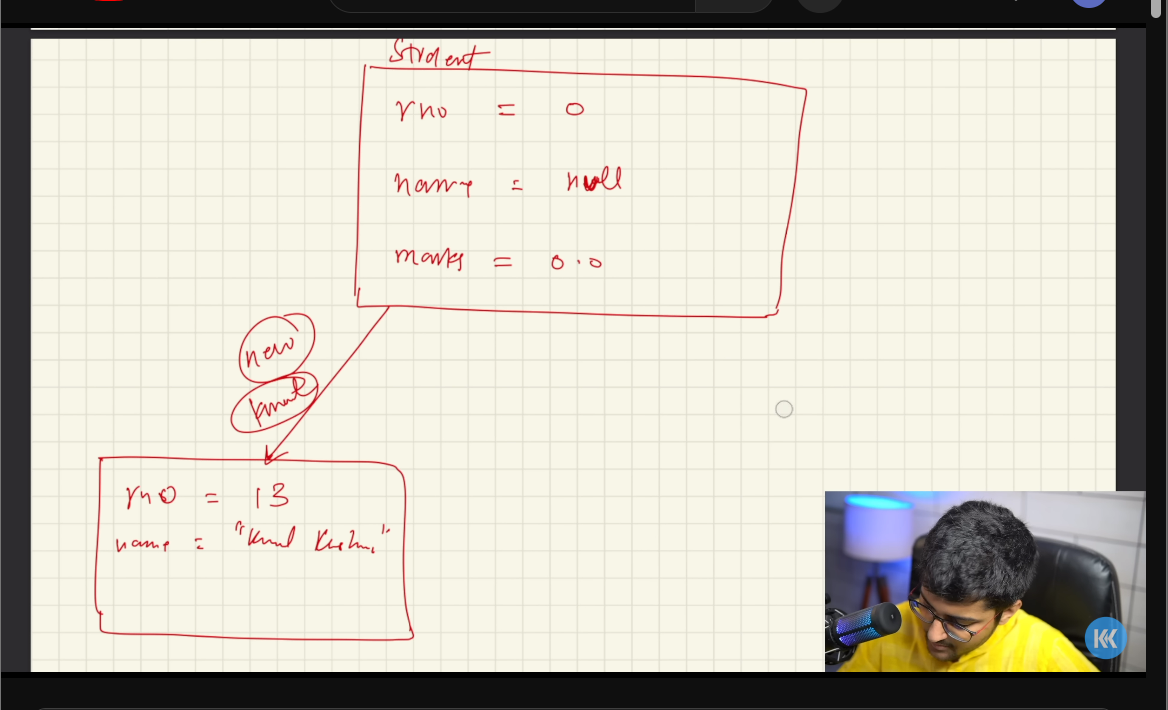 Student
rno = 0
name = null
marks = 0.0
new
kunal
rno = 13
name = "Kunal Kushwaha"
KK